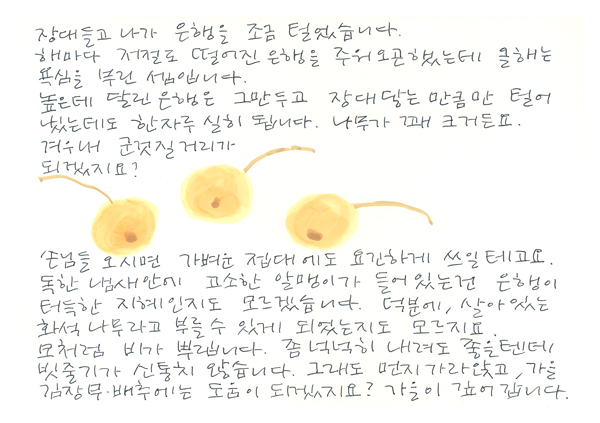 장대들고 나가 은행을 조금 털었습니다.
해마다 저절로 떨어진 은행을 주워오곤했는데 올해는
욕심을 부린 셈입니다.
높은데 달린 은행은 그만두고 장대 닿는 만큼만 털어
났는데도 한자루 실히 됩니다. 나무가 꽤 크거든요.
겨우내 군것질거리가
되겠지요?
손님들 오시면 가벼운 접대에도 요긴하게 쓰일테고요.
독한 냄새안에 고소한 알맹이가 들어있는건 은행이
터득한 지혜인지도 모르겠습니다. 덕분에, 살아있는
화석 나무라고 부를 수 있게 되었는지도 모르지요.
모처럼 비가 뿌립니다. 좀 넉넉히 내려도 좋을텐데
빗줄기가 신통치 않습니다. 그래도 먼지 가라앉고, 가을
김장무·배추에는 도움이 되겠지요? 가을이 깊어 갑니다.